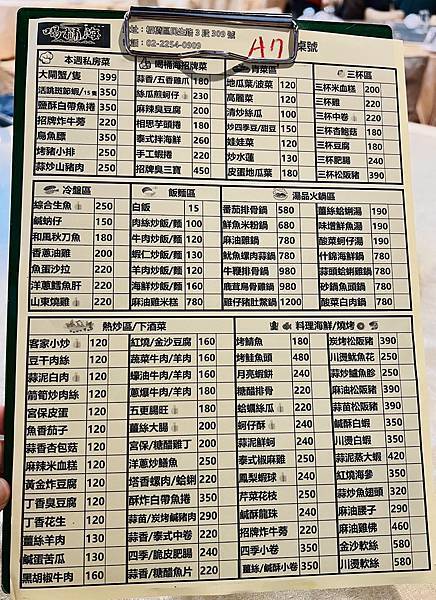 址: 板橋區民生路3段309號
話: 02-2254-0909
A7
桌號
本週私房菜
大閘蟹/隻 399
活跳斑節蝦/15隻 350
鹽酥白帶魚捲 350
招牌炸牛蒡 220
烏魚膘 350
烤豬小排 250
蒜炒山豬肉 250
喝桶海招牌菜
蒜香/五香雞爪 180
絲瓜煎蚵仔 230
麻辣臭豆腐 200
相思芋頭捲 180
泰式拌海鮮 260
手工蝦捲 220
招牌臭三寶 450
青菜區
地瓜葉/波菜 120
高麗菜 120
清炒絲瓜 100
炒四季豆/甜豆 150
娃娃菜 120
炒水蓮 130
皮蛋地瓜葉 180
三杯區
三杯米血糕 200
三杯雞 220
三杯中卷 220
三杯杏鮑菇 180
三杯豆腐 180
三杯肥腸 240
三杯松阪豬 390
冷盤區
綜合生魚 250
鹹蚋仔 150
和風秋刀魚 180
香蔥油雞 200
魚蛋沙拉 220
洋蔥鱈魚肝 220
山東燒雞 220
飯麵區
白飯 15
肉絲炒飯/麵 100
牛肉炒飯/麵 120
蝦仁炒飯/麵 130
羊肉炒飯/麵 120
海鮮炒飯/麵 160
麻油雞米糕 780
湯品火鍋區
番茄排骨鍋 580
鮮魚米粉鍋 680
麻油雞鍋 780
魷魚螺肉蒜鍋 780
牛鞭排骨鍋 980
鹿茸烏骨雞鍋 980
雞仔豬肚鱉鍋 1200
薑絲蛤蜊湯 190
味增鮮魚湯 190
酸菜蚵仔湯 190
什錦海鮮鍋 580
蒜頭蛤蜊雞鍋 780
砂鍋魚頭鍋 780
酸菜白肉鍋 780
熱炒區/下酒菜
客家小炒 120
豆干肉絲 120
蒜泥白肉 120
箭筍炒肉絲 120
宮保皮蛋 120
魚香茄子 120
蒜香杏包菇 120
麻辣米血糕 120
黃金炸豆腐 120
丁香臭豆腐 120
丁香花生 120
薑絲羊肉 130
鹹蛋苦瓜 130
黑胡椒牛肉 160
紅燒/金沙豆腐 160
蔬菜牛肉/羊肉 160
蠔油牛肉/羊肉 160
蔥爆牛肉/羊肉 180
五更腸旺 180
薑絲大腸 200
宮保/糖醋雞丁 200
洋蔥炒鱔魚 250
塔香螺肉/蛤蜊 220
酥炸白帶魚捲 350
蒜苗/炭烤鹹豬肉 290
蒜香/泰式中卷 220
四季/脆皮肥腸 240
蒜香/糖醋魚片 220
料理海鮮/燒烤
烤鯖魚 180
烤鮭魚頭 480
月亮蝦餅 240
糖醋排骨 240
蛤蠣絲瓜 220
蚵仔酥 240
蒜泥鮮蚵 240
泰式椒麻雞 250
鳳梨蝦球 240
芹菜花枝 250
鹹酥龍珠 250
招牌炸牛蒡 220
四季小卷 350
薑絲/鹹酥小卷 350
炭烤松阪豬 390
川燙魷魚花 250
蒜炒鱸魚胗 250
麻油松阪豬 390
蒜苗松阪豬 390
鹹酥白蝦 350
川燙白蝦 350
蒜泥蒸大蝦 420
紅燒海參 350
蒜炒魚翅頭 320
麻油腰子 290
麻油雞佛 460
金沙軟絲 580
川燙軟絲 580